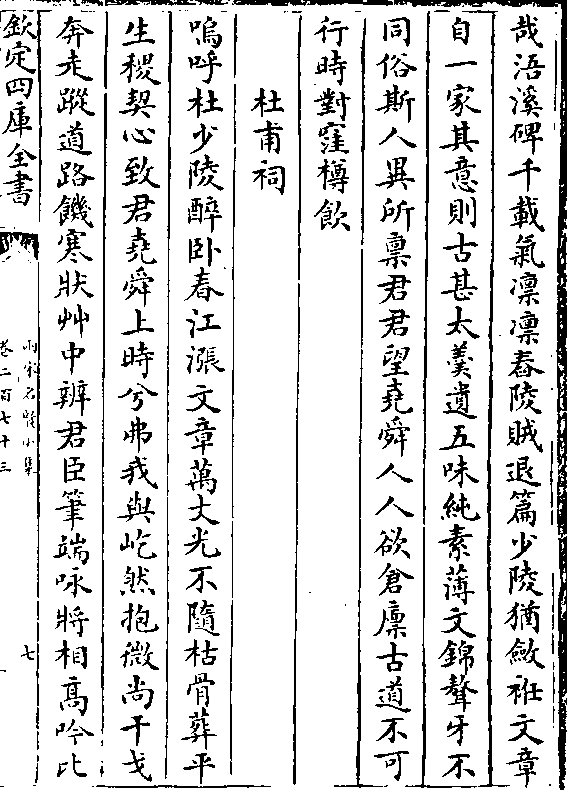 哉浯溪碑千載氣凜凜舂陵賊退篇少陵猶斂袵文章
自一家其意則古甚太羮遺五味純素薄文錦聱牙不
同俗斯人異所禀君君望堯舜人人欲倉廩古道不可
行時對窪樽飲
杜甫祠
嗚呼杜少陵醉卧春江漲文章萬丈光不隨枯骨葬平
生稷契心致君堯舜上時兮弗我與屹然抱微尚干戈
奔走蹤道路饑寒狀艸中辨君臣筆端咏將相高吟比
欽定四庫全書
兩宋名賢小集
卷二百七十三
七